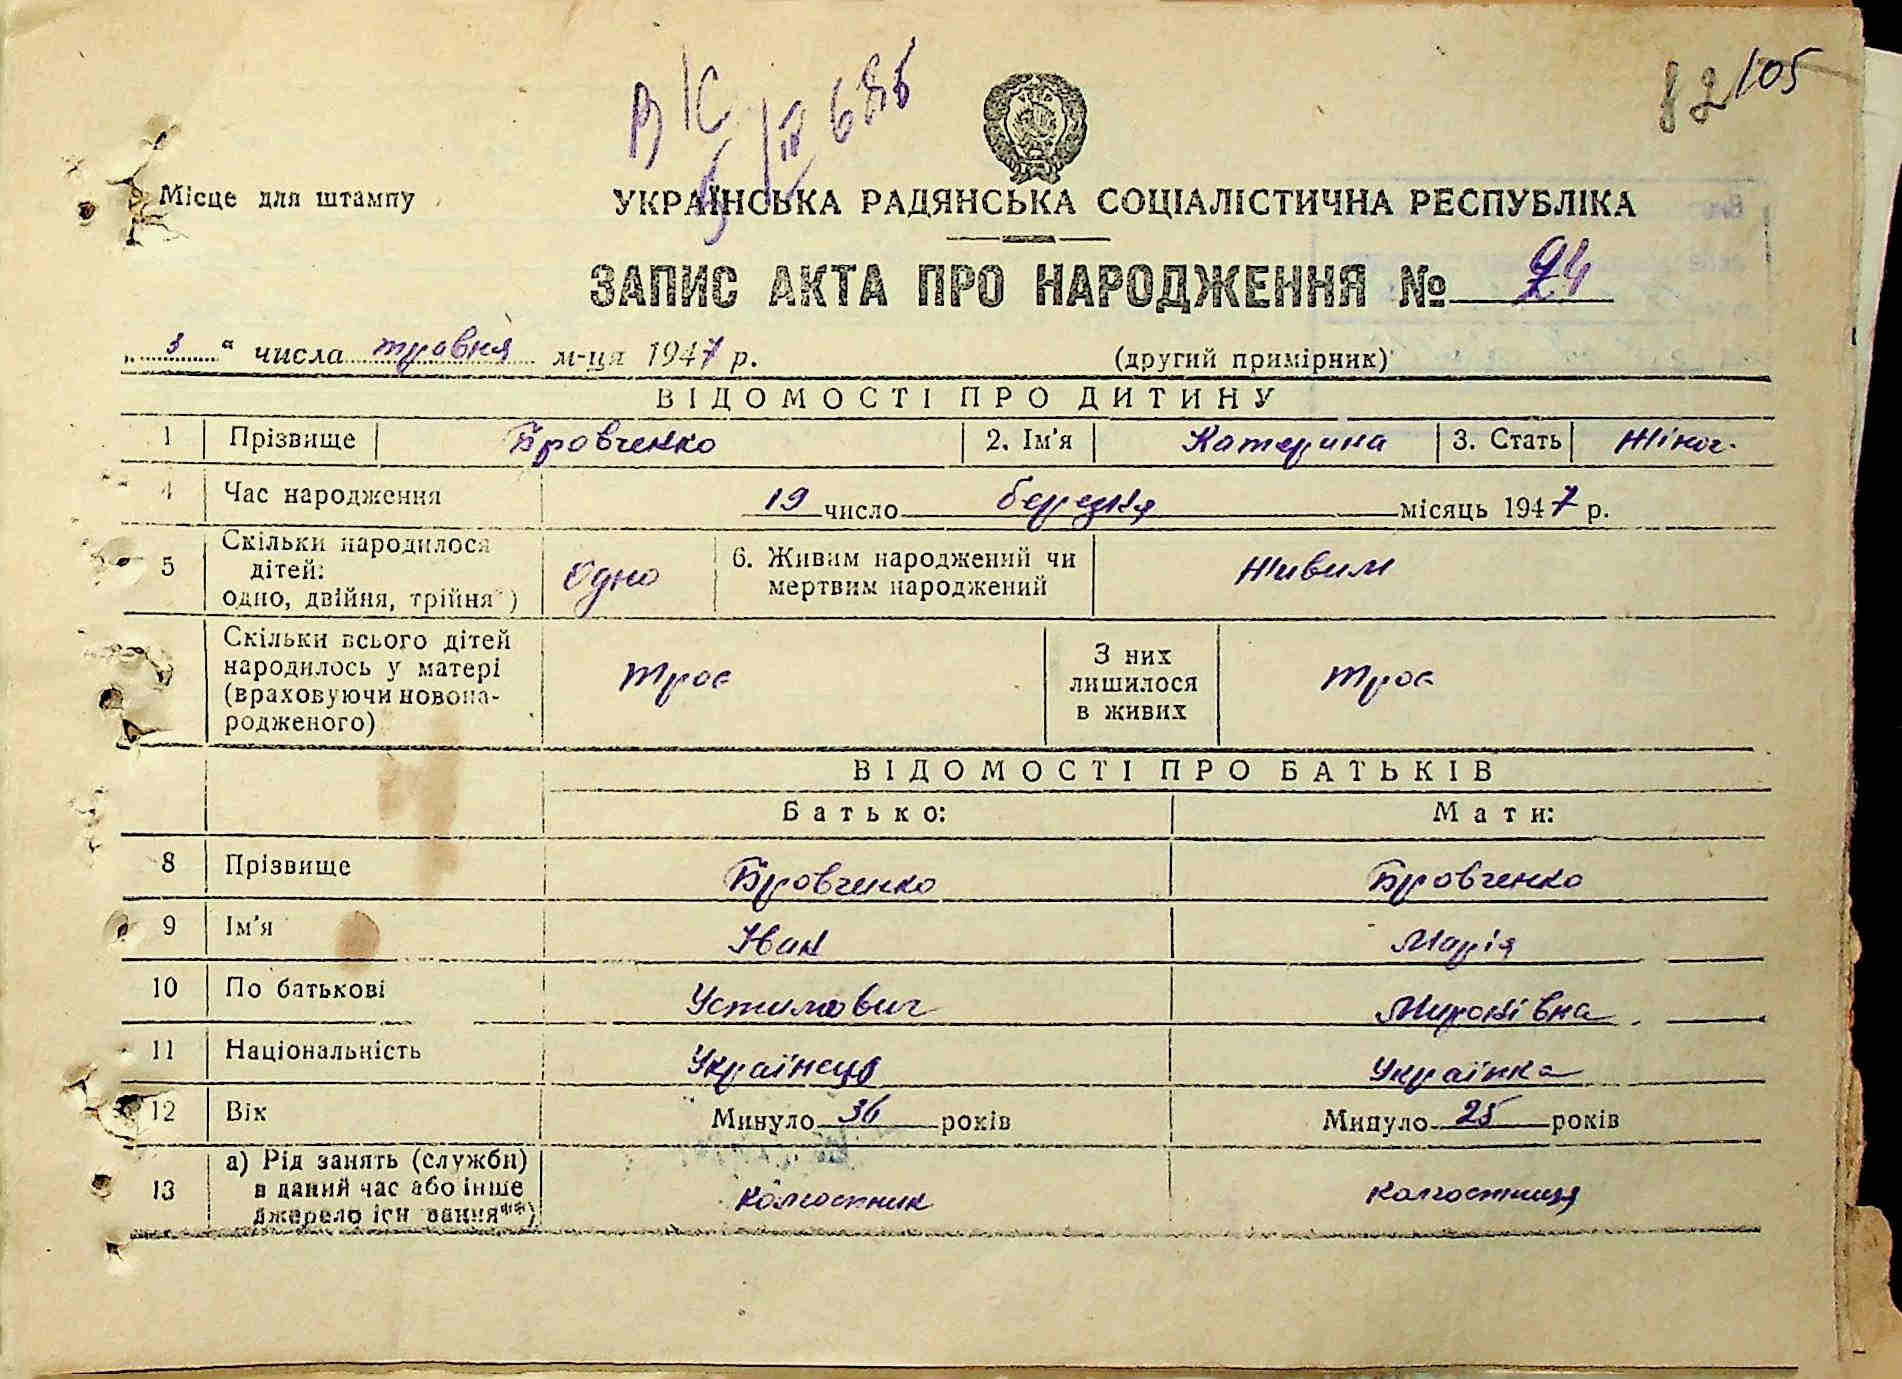 ВК
5/IV 68б
82 105
Місце для штампу
УКРАЇНСЬКА РАДЯНСЬКА СОЦІАЛІСТИЧНА РЕСПУБЛІКА
ЗАПИС АКТА ПРО НАРОДЖЕННЯ № 94
„ 3 “ числа травня м-ця 1947 р. (другий примірник)
ВІДОМОСТІ ПРО ДИТИНУ
1 Прізвище Бровченко 2. Ім'я Катерина 3. Стать Жіноч.
4 Час народження 19 число березня місяць 1947 р.
5 Скільки народилося дітей: одно, двійня, трійня*) Одно 6. Живим народжений чи мертвим народжений Живим
Скільки всього дітей народилось у матері (враховуючи новонародженого) Троє З них лишилося в живих Троє
ВІДОМОСТІ ПРО БАТЬКІВ
Батько: Мати:
8 Прізвище Бровченко Бровченко
9 Ім'я Іван Марія
10 По батькові Устимович Миронівна
11 Національність Українець Українка
12 Вік Минуло 36 років Минуло 25 років
13 а) Рід занять (служби) в даний час або інше джерело існ вання**) колгоспник колгоспниця